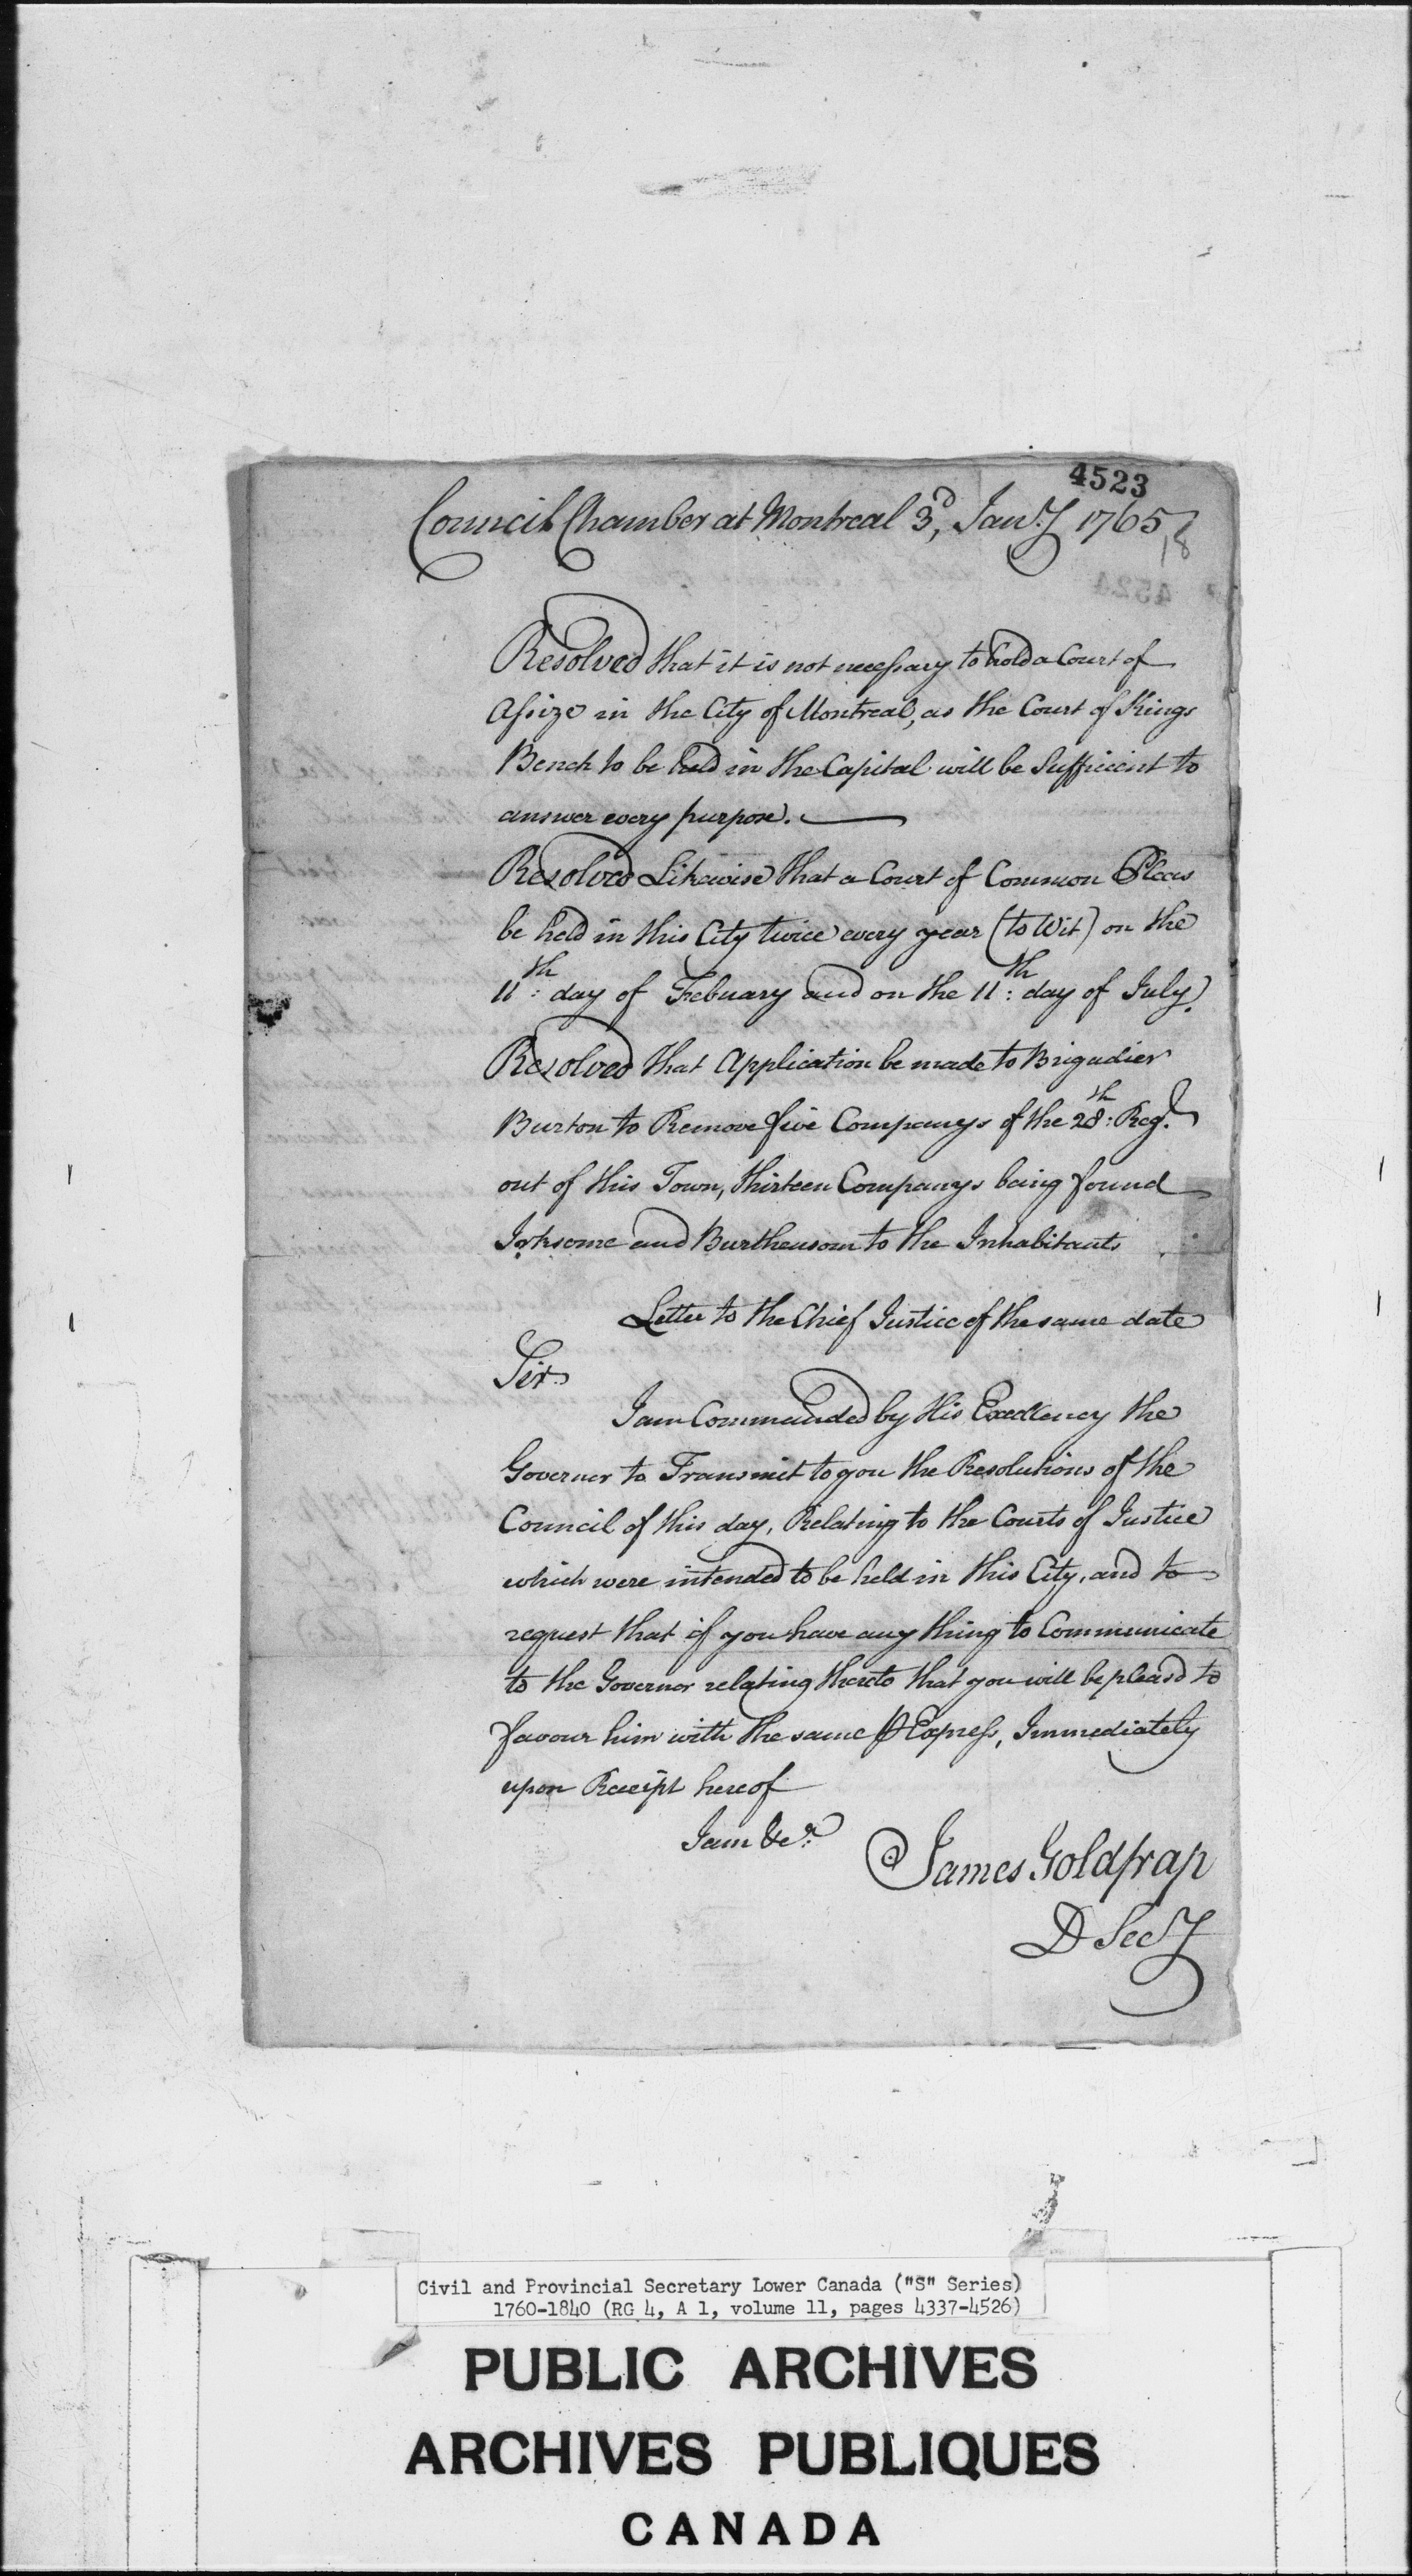 4523
Council Chamber at Montreal 3d, Jany 1765
18
4524
Resolved that it is not necessary to hold a Court of
Assize in the City of Montreal, as the Court of Kings
Bench to be held in the Capital will be Sufficient to
answer every purpose.
Resolved Likewise that a Court of Common Pleas
be held in this City twice every year (to Wit) on the
11th: day of Febuary and on the 11th: day of July.
Resolved that Application be made to Brigadier
Burton to Remove five Companys of the 28th: Regt.
out of this Town, thirteen Companys being found
Irksome and Burthensom to the Inhabitants
Letter to the Chief Justice of the same date
Sir
I am Commanded by His Excellency the
Governor to Transmit to you the Resolutions of the
Council of this day, Relating to the Courts of Justice
which were intended to be held in this City, and to
request that if you have any thing to Communicate
to the Governor relating thereto that you will be pleasd to
favour him with the same ⅌ Express, Immediately
upon Receipt hereof
I am &ca.
James Goldfrap
D Secy
Civil and Provincial Secretary Lower Canada ("S" Series)
1760-1840 (RG 4, A 1, volume 11, pages 4337-4526)
PUBLIC ARCHIVES
ARCHIVES PUBLIQUES
CANADA